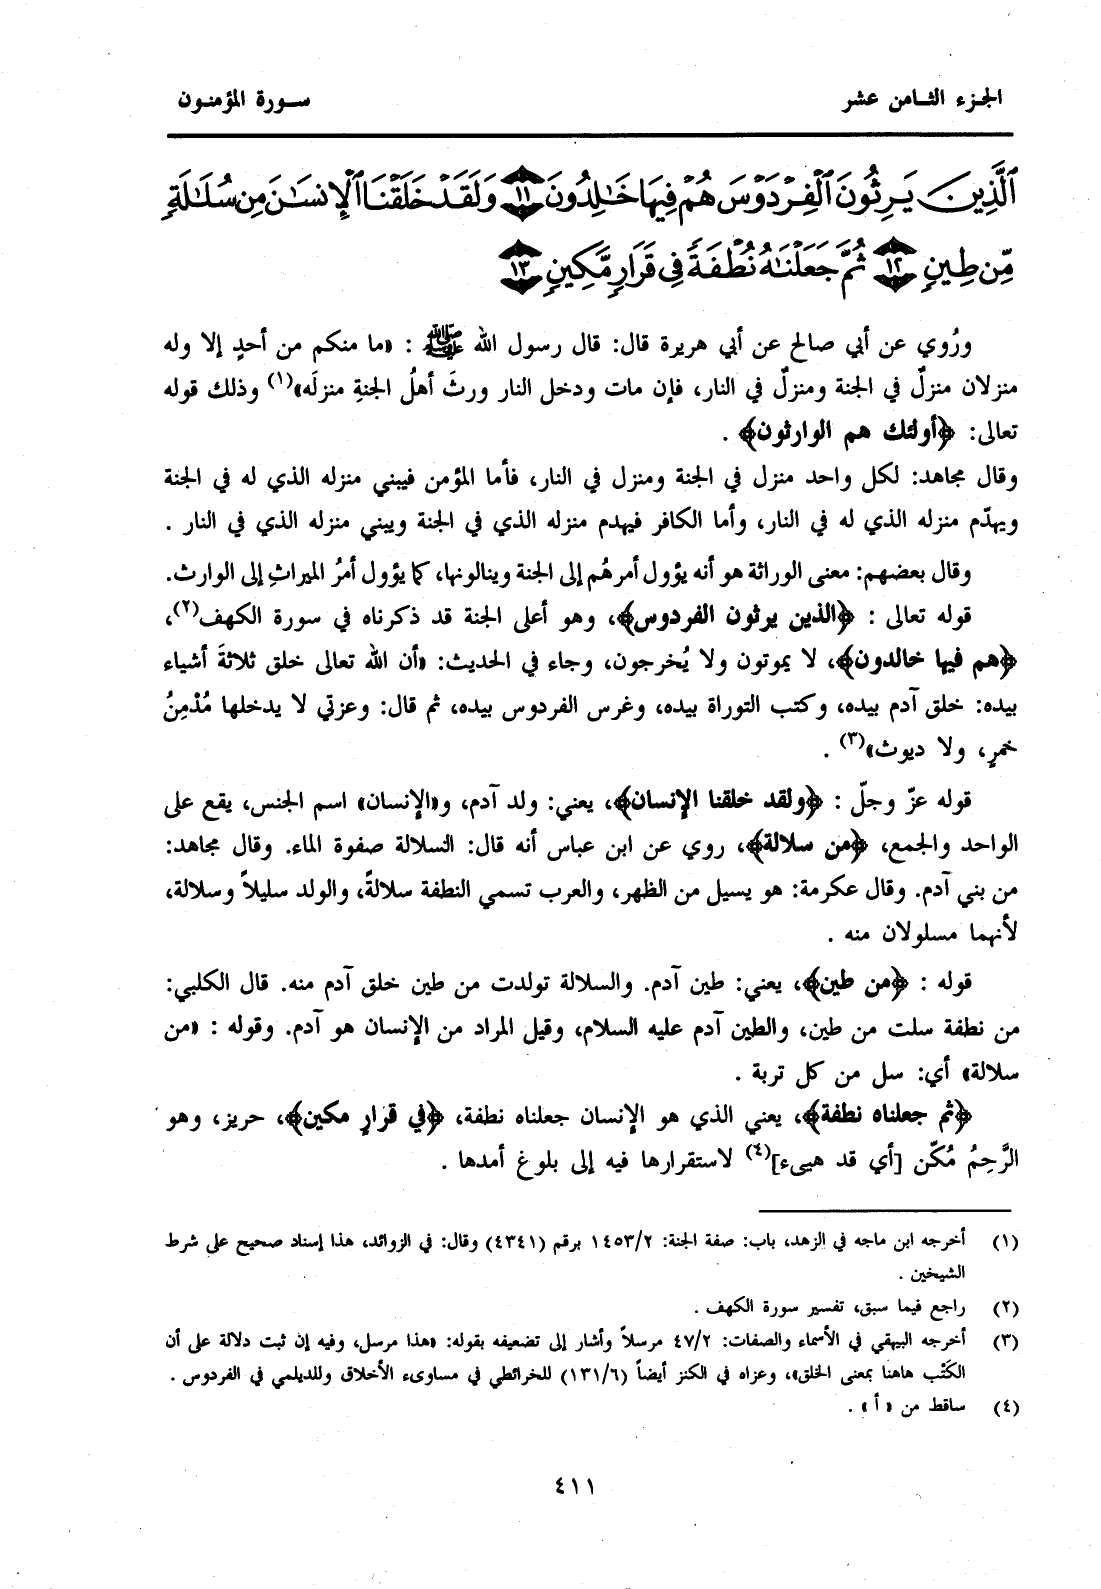 الجزء الثامن عشر
سورة المؤمنون
ٱلَّذِينَ يَرِثُونَ ٱلْفِرْدَوْسَ هُمْ فِيهَا خَٰلِدُونَ ﴿١١﴾ وَلَقَدْ خَلَقْنَا ٱلْإِنسَٰنَ مِن سُلَٰلَةٍ
مِّن طِينٍ ﴿١٢﴾ ثُمَّ جَعَلْنَٰهُ نُطْفَةً فِي قَرَارٍ مَّكِينٍ ﴿١٣﴾
ورُوي عن أبي صالح عن أبي هريرة قال: قال رسول الله ﷺ : «ما منكم من أحدٍ إلا وله
منزلان منزلٌ في الجنة ومنزلٌ في النار، فإن مات ودخل النار ورثَ أهلُ الجنةِ منزلَه»(١) وذلك قوله
تعالى: ﴿أولئك هم الوارثون﴾ .
وقال مجاهد: لكل واحد منزل في الجنة ومنزل في النار، فأما المؤمن فيبني منزله الذي له في الجنة
ويهدّم منزله الذي له في النار، وأما الكافر فيهدم منزله الذي في الجنة ويبني منزله الذي في النار .
وقال بعضهم: معنى الوراثة هو أنه يؤول أمرهُم إلى الجنة وينالونها، كما يؤول أمرُ الميراثِ إلى الوارث.
قوله تعالى : ﴿الذين يرثون الفردوس﴾، وهو أعلى الجنة قد ذكرناه في سورة الكهف(٢)،
﴿هم فيها خالدون﴾، لا يموتون ولا يُخرجون، وجاء في الحديث: «أن الله تعالى خلق ثلاثةَ أشياء
بيده: خلق آدم بيده، وكتب التوراة بيده، وغرس الفردوس بيده، ثم قال: وعزتي لا يدخلها مُدْمِنُ
خمرٍ، ولا ديوث»(٣) .
قوله عزّ وجلّ : ﴿ولقد خلقنا الإنسان﴾، يعني: ولد آدم، و«الإنسان» اسم الجنس، يقع على
الواحد والجمع، ﴿من سلالة﴾، روي عن ابن عباس أنه قال: السلالة صفوة الماء. وقال مجاهد:
من بني آدم. وقال عكرمة: هو يسيل من الظهر، والعرب تسمي النطفة سلالةً، والولد سليلاً وسلالة،
لأنهما مسلولان منه .
قوله : ﴿من طين﴾، يعني: طين آدم. والسلالة تولدت من طين خلق آدم منه. قال الكلبي:
من نطفة سلت من طين، والطين آدم عليه السلام، وقيل المراد من الإنسان هو آدم. وقوله : «من
سلالة» أي: سل من كل تربة .
﴿ثم جعلناه نطفة﴾، يعني الذي هو الإنسان جعلناه نطفة، ﴿في قرارٍ مكين﴾، حريز، وهو
الرَّحِمُ مُكّن [أي قد هيىء](٤) لاستقرارها فيه إلى بلوغ أمدها .
(١) أخرجه ابن ماجه في الزهد، باب: صفة الجنة: ١٤٥٣/٢ برقم (٤٣٤١) وقال: في الزوائد، هذا إسناد صحيح على شرط
الشيخين .
(٢) راجع فيما سبق، تفسير سورة الكهف .
(٣) أخرجه البيهقي في الأسماء والصفات: ٤٧/٢ مرسلاً وأشار إلى تضعيفه بقوله: «هذا مرسل، وفيه إن ثبت دلالة على أن
الكَتْب هاهنا بمعنى الخلق»، وعزاه في الكنز أيضاً (١٣١/٦) للخرائطي في مساوىء الأخلاق وللديلمي في الفردوس .
(٤) ساقط من «أ» .
٤١١